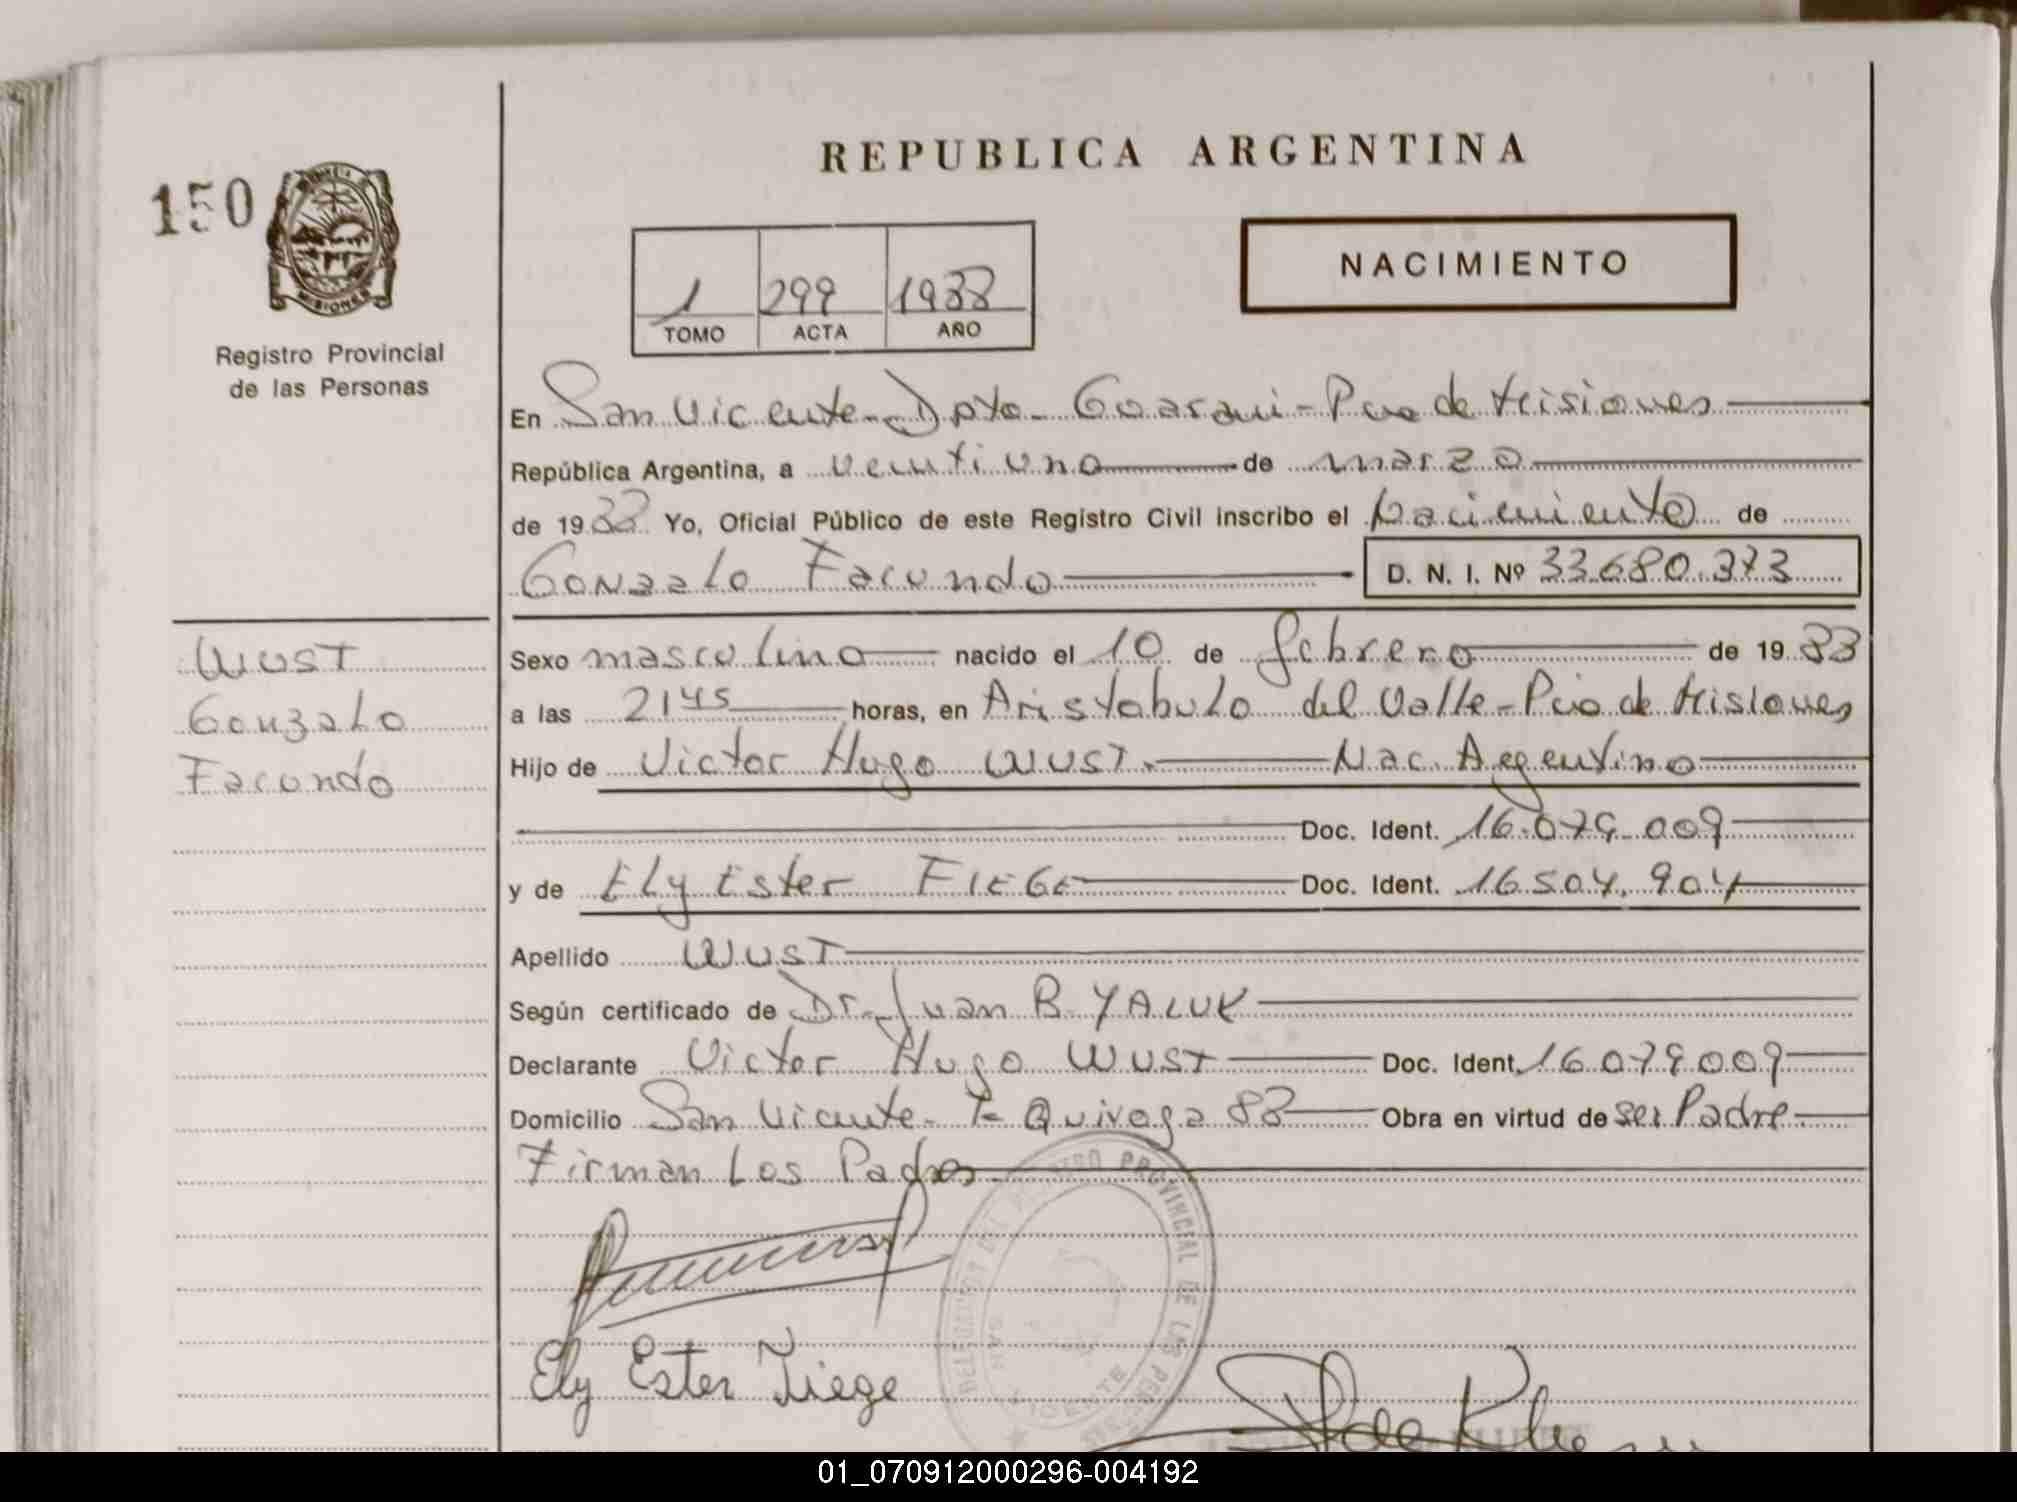 REPUBLICA ARGENTINA
150
MISIONES
Registro Provincial
de las Personas
NACIMIENTO
1 299 1988
TOMO ACTA AÑO
En San Vicente - Dpto - Guaraní - Pcia de Misiones
República Argentina, a veintiuno de marzo
de 1988 Yo, Oficial Público de este Registro Civil inscribo el Nacimiento de
Gonzalo Facundo D. N. I. Nº 33.680.373
WUST
Gonzalo
Facundo
Sexo masculino nacido el 10 de febrero de 1988
a las 2145 horas, en Aristobulo del Valle - Pcia de Misiones
Hijo de Victor Hugo WUST. Nac. Argentino
Doc. Ident. 16.079.009
y de Ely Ester FIEGE Doc. Ident. 16.504.904
Apellido WUST
Según certificado de Dr. Juan B. YALUK
Declarante Victor Hugo WUST Doc. Ident. 16.079.009
Domicilio San Vicente - Quiroga 88 Obra en virtud de ser Padre
Firman Los Padres
DELEGACION DEL REGISTRO PROVINCIAL DE LAS PERSONAS
SAN VICENTE
Ely Ester Fiege
01_070912000296-004192